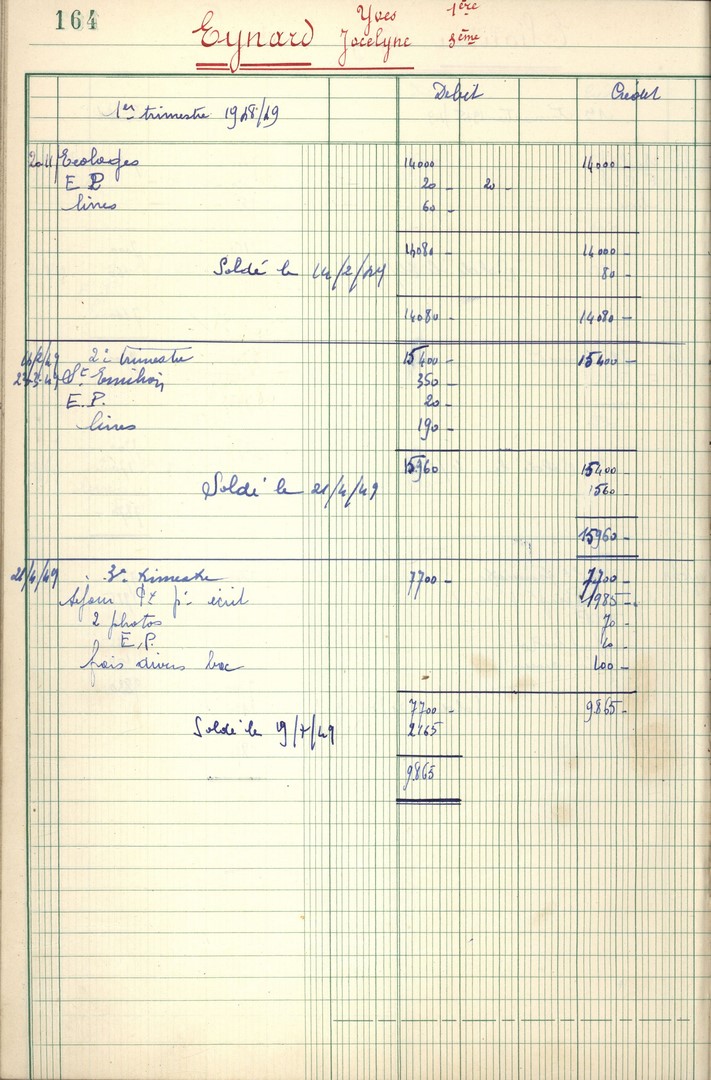 164
Eynard Yves 1ère
Jocelyne 3ème
Débit Crédit
1er trimestre 1948/49
Ecolages 14000 14000 -
E P 20 - 20 -
livres 60 -
14080 - 14000 -
Soldé le 14/2/49 80 -
14080 - 14080 -
14/2/49 2è trimestre 15400 - 15400 -
St. Emilion 350 -
E.P. 20 -
livres 190 -
15960 15400 -
Soldé le 21/4/49 1560
15960 -
21/4/49 3e trimestre 7700 - 7700 -
1985 -
2 photos 70 -
E.P.
frais divers bac 100 -
7700 - 9865 -
Soldé le 19/7/49 2165
9865